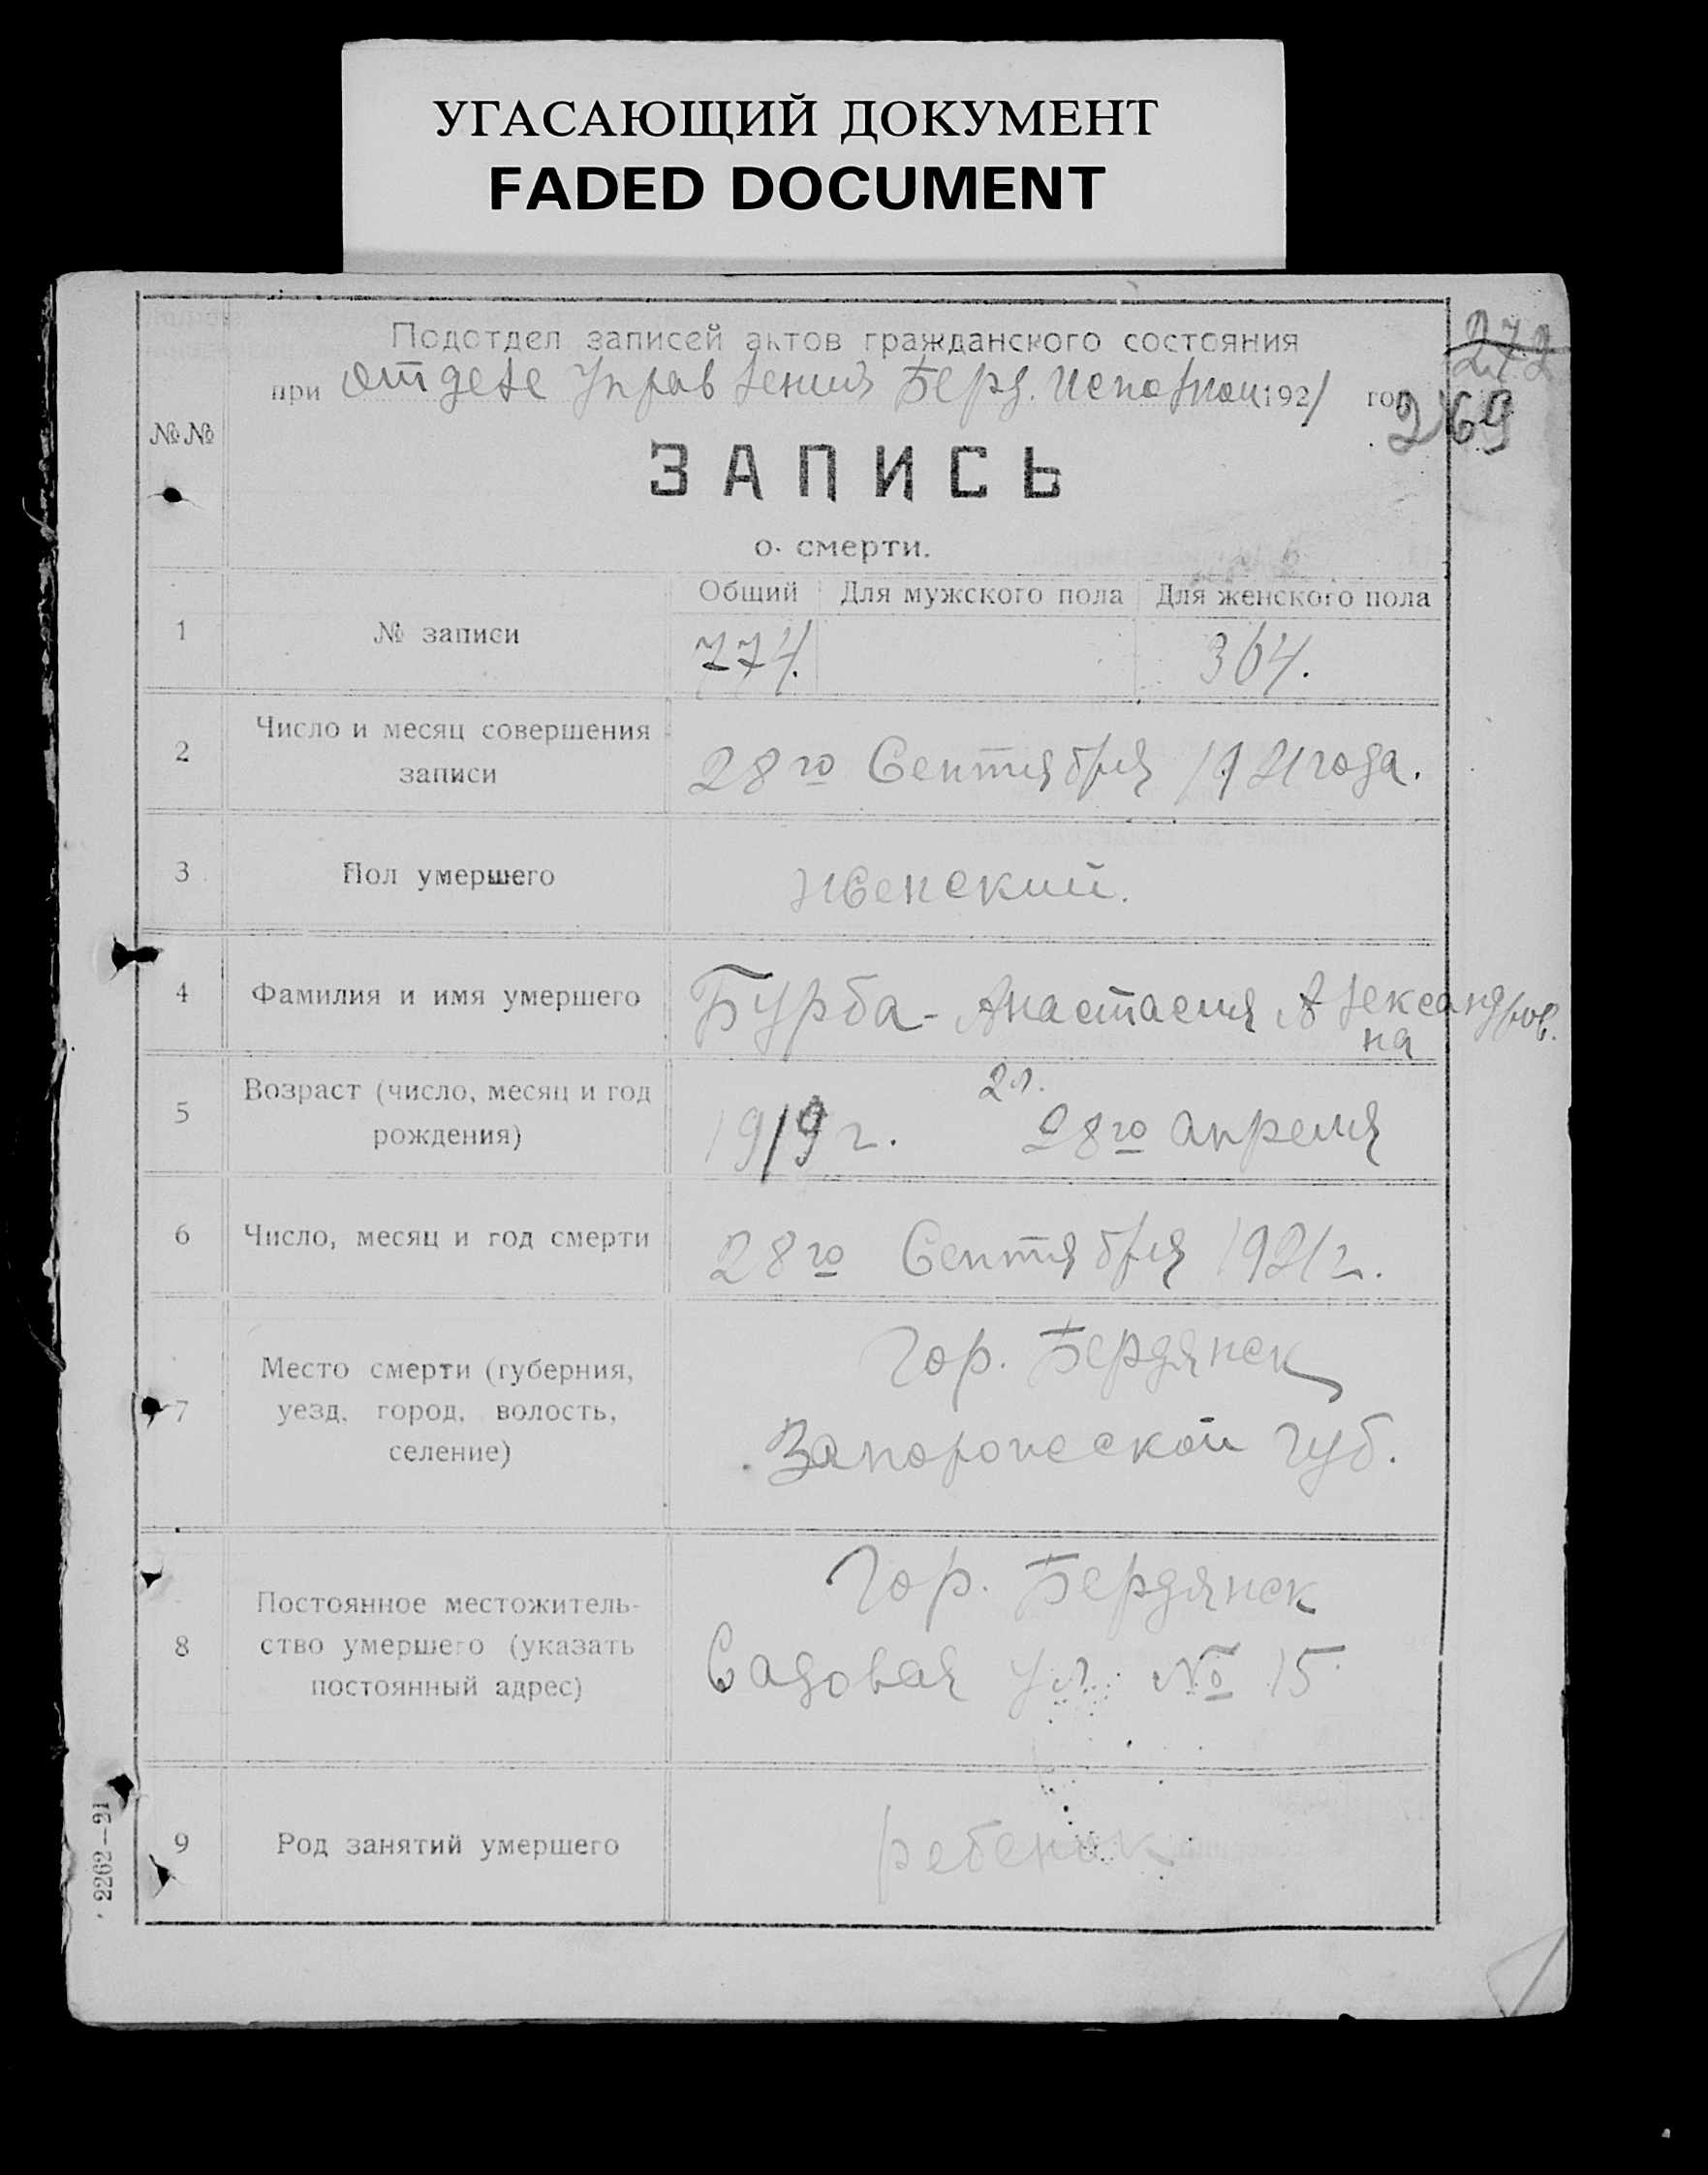 УГАСАЮЩИЙ ДОКУМЕНТ
FADED DOCUMENT
272
Подотдел записей актов гражданского состояния
при отделе Управления Берд. Исполком 1921 год
269
№№
ЗАПИСЬ
о смерти.
Общий Для мужского пола Для женского пола
1 № записи 774. 364.
2 Число и месяц совершения
записи 28го Сентября 1921 года.
3 Пол умершего женский.
4 Фамилия и имя умершего Бурба - Анастасия Александров.
на
5 Возраст (число, месяц и год
рождения) 1919 г. 2 л. 28го апреля
6 Число, месяц и год смерти 28го Сентября 1921 г.
7 Место смерти (губерния,
уезд, город, волость,
селение)
Гор. Бердянск
Запорожской губ.
8 Постоянное местожитель-
ство умершего (указать
постоянный адрес)
Гор. Бердянск
Садовая ул. № 15
9 Род занятий умершего ребенок
2262—21